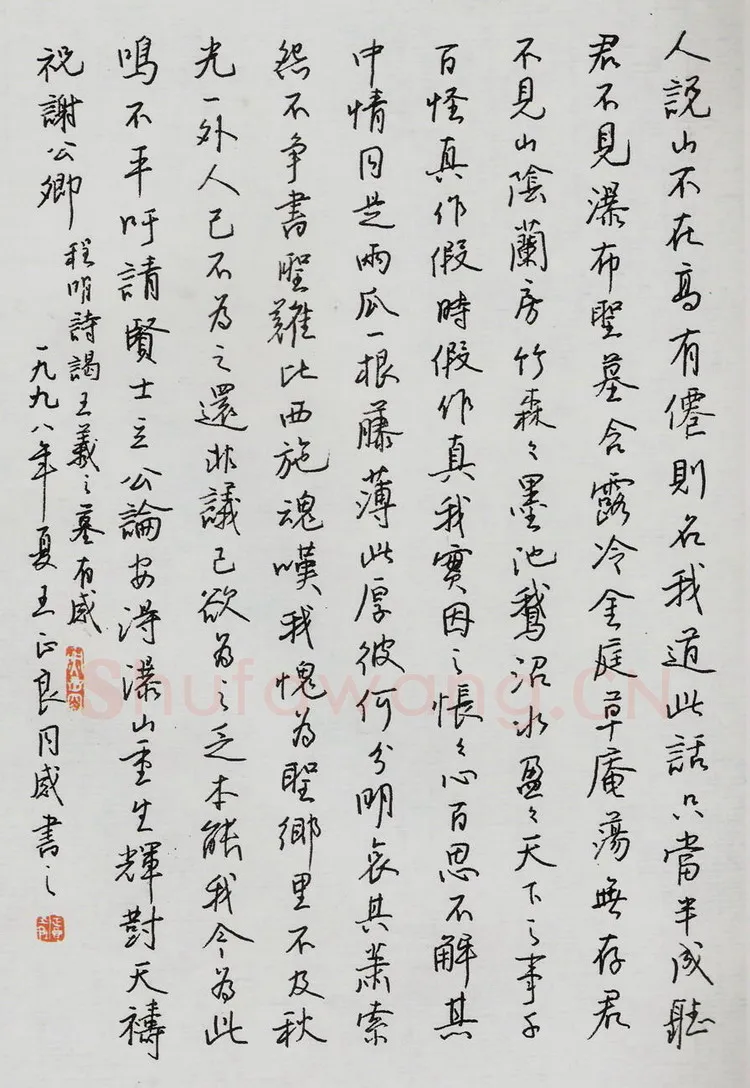 人說山不在高有僊則名我道此話只當半成聽
君不見瀑布聖墓含露冷金庭草庵蕩無存君
不見山陰蘭房竹森〻墨池鵝沼水盈〻天下之事千
百怪真作假時假作真我實因之悵〻心百思不解其
中情同是兩瓜一根藤薄此厚彼何分明哀其蕭索
怨不争書聖難比西施魂嘆我愧為聖鄉里不及秋
光一外人己不為之還非議己欲為之乏本能我今為此
鳴不平吁請賢士立公論安得瀑山重生輝對天禱
祝謝公卿
程明詩謁王羲之墓有感
一九九八年夏王正良同感書之
Shufawang.CN